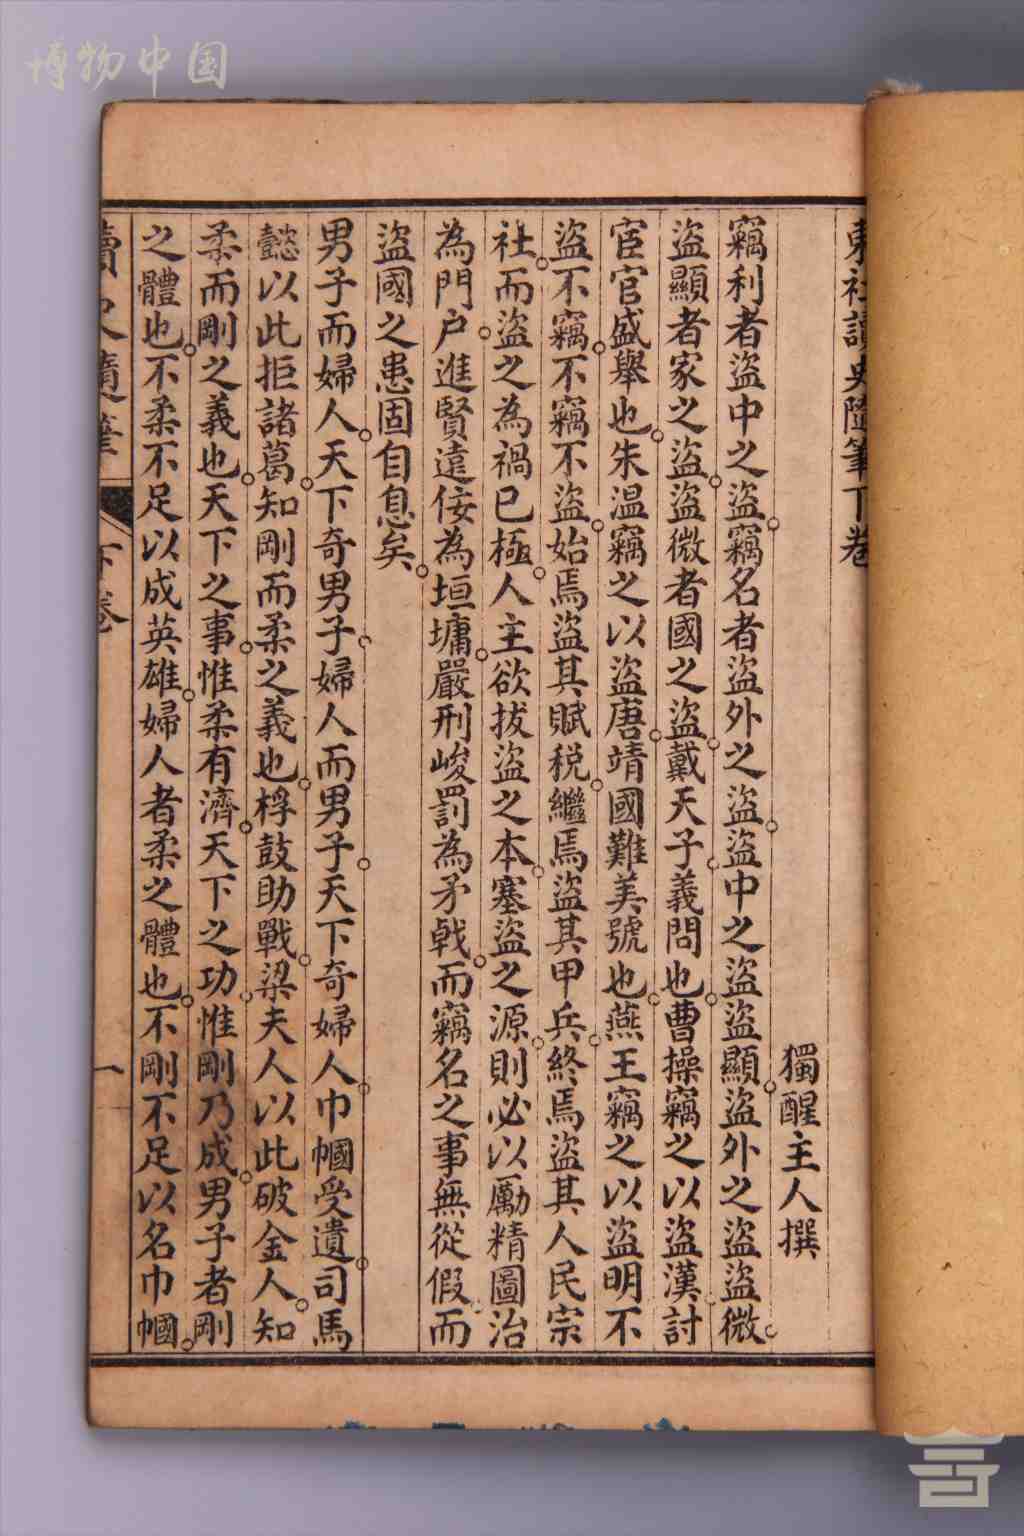 博物中国
東社讀史隨筆下卷
獨醒主人撰
竊利者盜中之盜竊名者盜外之盜盜中之盜盜顯盜外之盜盜微
盜顯者家之盜盜微者國之盜戴天子義問也曹操竊之以盜漢討
宦官盛舉也朱温竊之以盜唐靖國難美號也燕王竊之以盜明不
盜不竊不竊不盜始焉盜其賦税繼焉盜其甲兵終焉盜其人民宗
社而盜之為禍已極人主欲拔盜之本塞盜之源則必以勵精圖治
為門户進賢遠佞為垣墉嚴刑峻罰為矛戟而竊名之事無從假而
盜國之患固自息矣
男子而婦人天下奇男子婦人而男子天下奇婦人巾幗受遺司馬
懿以此拒諸葛知剛而柔之義也桴鼓助戰梁夫人以此破金人知
柔而剛之義也天下之事惟柔有濟天下之功惟剛乃成男子者剛
之體也不柔不足以成英雄婦人者柔之體也不剛不足以名巾幗
讀史隨筆 下卷 一